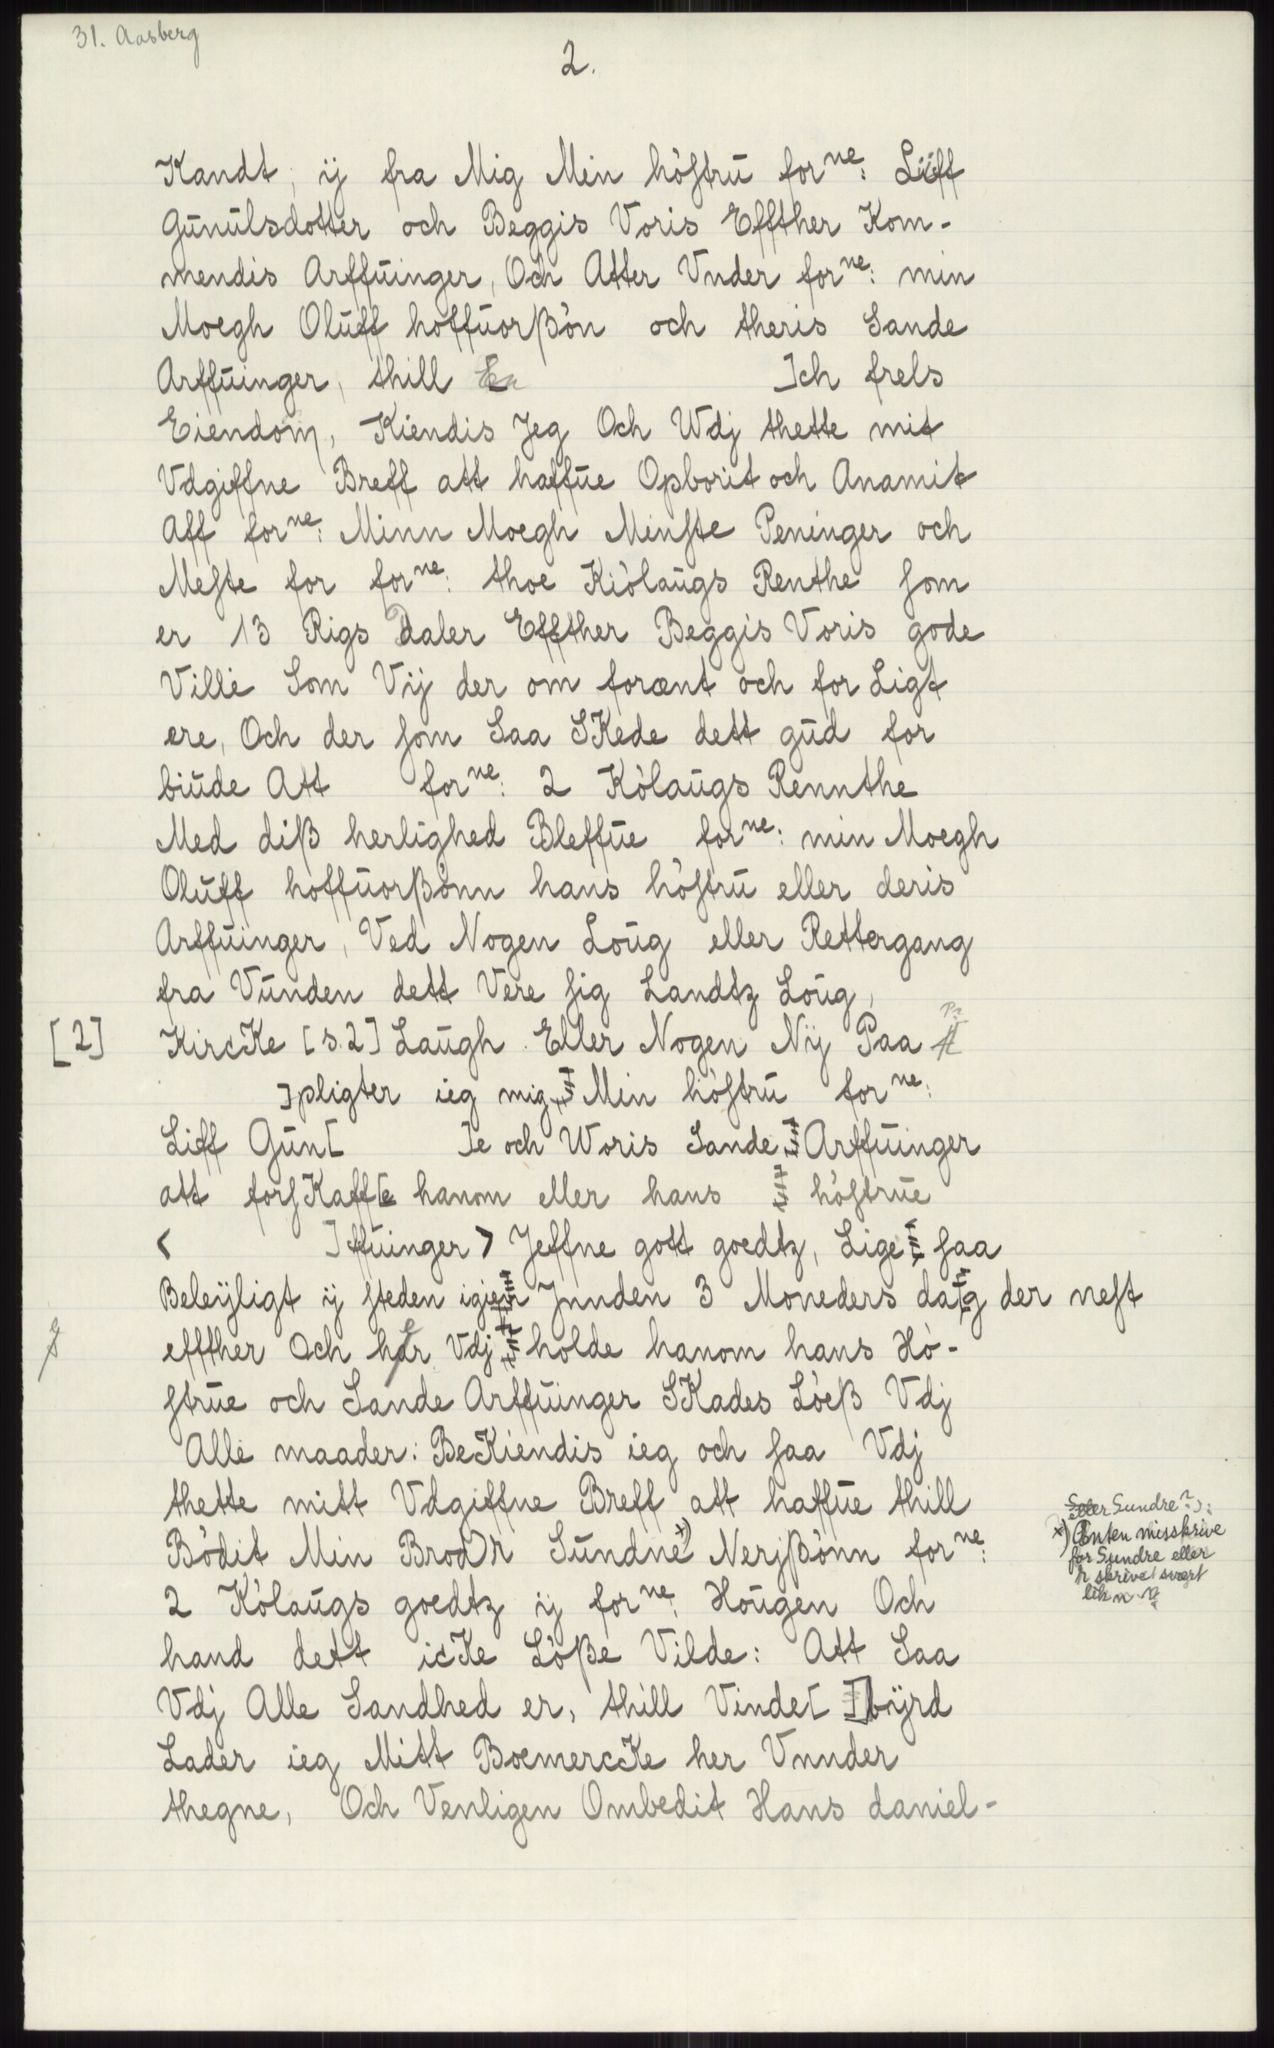 31. Aasberg
2.
Kandt, ij fra Mig Min höstrŭ for^ne: Liŭff
Gŭnŭlsdotter och Beggis Voris Effther Kom-
mendis Arffŭinger, Och Atter Vnder for^ne: min
Moegh Olŭff hoffŭorßön och theris Sande
Arffŭinger, thill E ]ch frels
Eiendom, Kiendis Jeg Och Wdj thette mit
Vdgiffne Breff att haffŭe Opborit och Anamit
Aff for^ne: Minn Moegh Minste Peninger och
Meste for for^ne: thoe Kiölaŭgs Renthe som
er 13 Rigs Daler Effther Beggis Voris gode
Villie Som Vij der om forænt och for Ligt
ere, Och der som Saa SKede dett gŭd for
biŭde Att for^ne: 2 Kölaŭgs Rennthe
Med diß herlighed Bleffŭe for^ne: min Moegh
Olŭff hoffŭorßönn hans höstrŭ eller deris
Arffŭinger, Ved Nogen Loŭg eller Rettergang
fra Vŭnden dett Vere sig Landtz Loŭg,
[2] KircKe [s.2] Laŭgh. Eller Nogen Nÿ Paa
]pligter ieg mig, Min höstrŭ for^ne:
Liff Gŭn[ ]e och Woris Sande Arffŭinger
att forsKaff[e hanom eller hans höstrŭe
< ]ffŭinger > Jeffne gott goedtz, Lige saa
Beleÿligt ij steden igien Jnnden 3 Moneders dag der nest
effther Och her Vdj holde hanom hans Hö-
strŭe och Sande Arffŭinger SKades Löeß Vdj
Alle maader: BeKiendis ieg och saa Vdj
thette mitt Vdgiffne Breff att haffŭe thill
Bödit Min Brodr Sŭndne x) Nerjßönn for^ne:
Sundre?):
x) Enten misskrive
for Sundre eller
r skrive svært
lik n
2 Kölaŭgs goedtz ij for^ne: Hoŭgen Och
hand dett icKe Löße Vilde: Att Saa
Vdj Alle Sandhed er, thill Vinde[ ]bÿrd
Lader ieg Mitt BoemercKe her Vnnder
thegne, Och Venligen Ombedit Hans daniel-